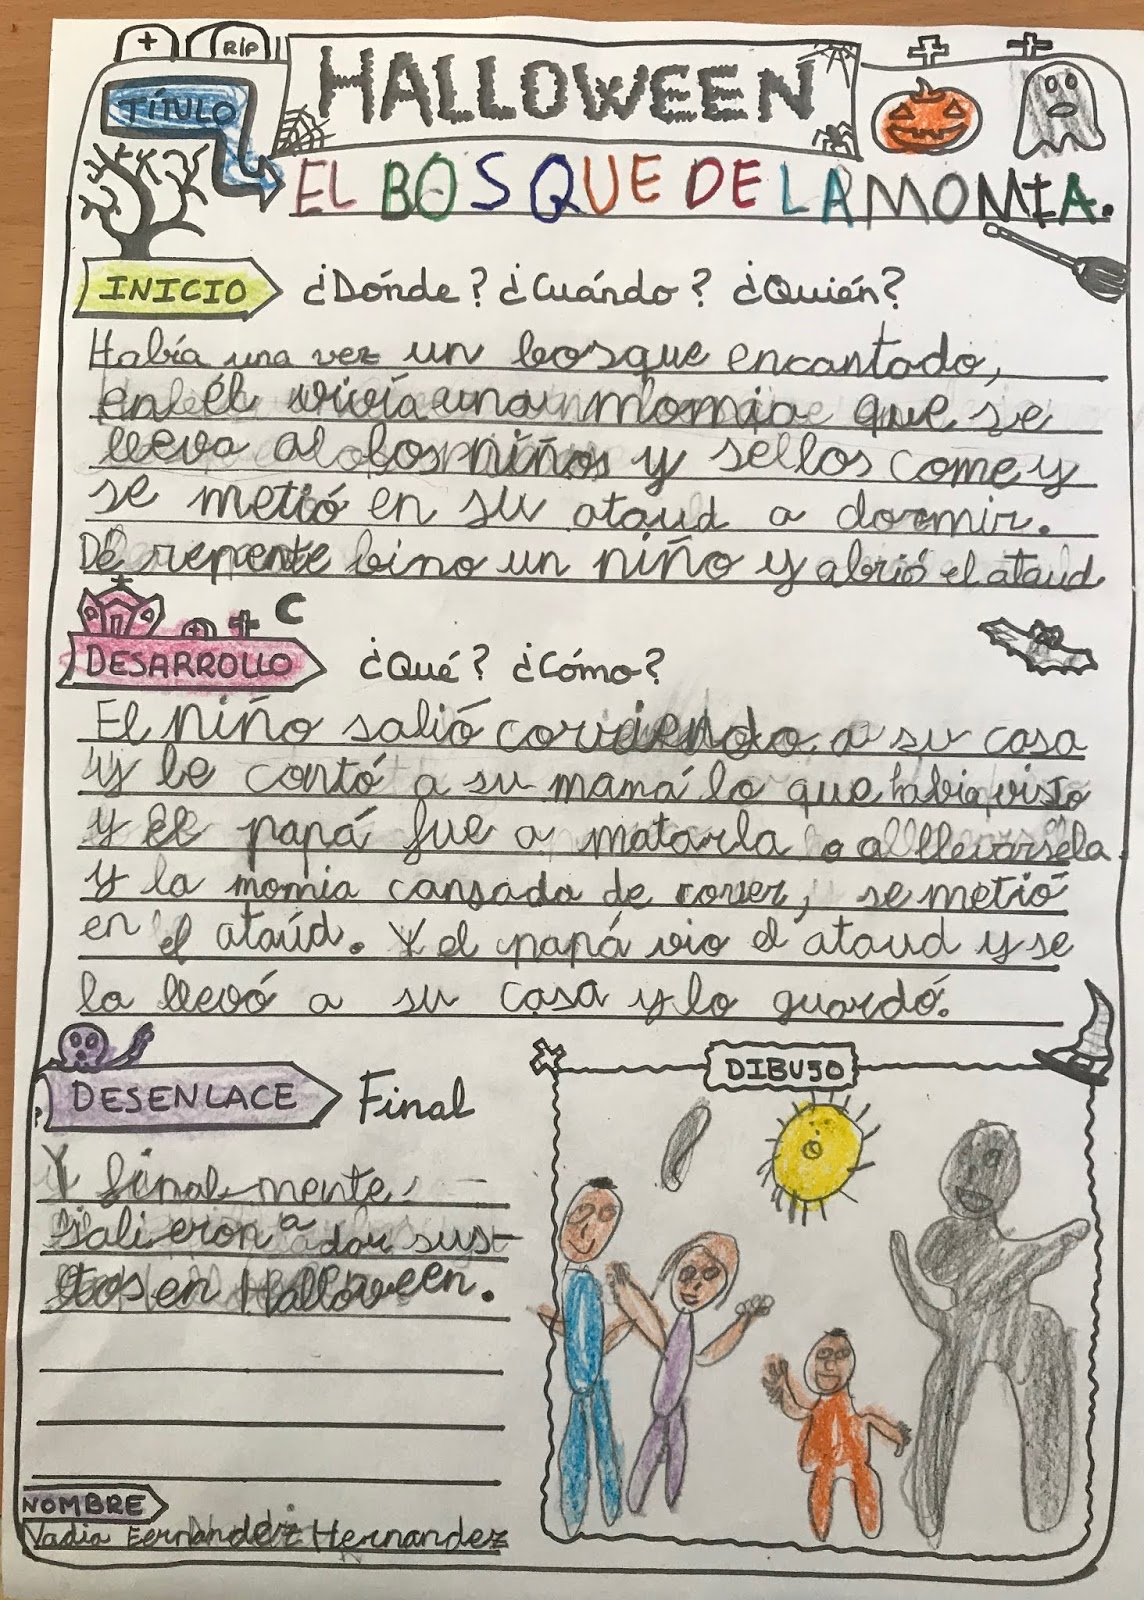 RIP
HALLOWEEN
TÍTULO
EL BOSQUE DE LA MOMIA.
INICIO ¿Dónde? ¿Cuándo? ¿Quién?
Había una vez un bosque encantado,
en él vivía una momia que se
lleva a los niños y sellos come y
se metió en su ataud a dormir.
De repente bino un niño y abrió el ataud
DESARROLLO ¿Qué? ¿Cómo?
El niño salió corriendo a su casa
y le contó a su mamá lo que habia visto
y el papá fue a matarla o a llevarsela
y la momia cansada de correr, se metió
en el ataúd. Y el papá vio el ataud y se
la llevó a su casa y lo guardó.
DESENLACE Final
Y finalmente
salieron a dar sus-
tos en Halloween.
DIBUJO
NOMBRE
Nadia Fernandez Hernandez